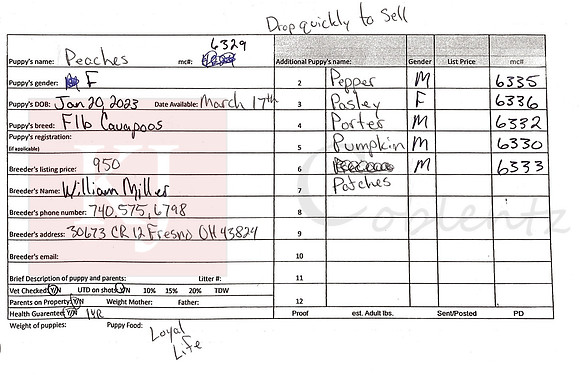 Drop quickly to Sell
6329
Puppy's name: Peaches mc#:
Additional Puppy's name: Gender List Price mc#
Puppy's gender: F
2 Pepper M 6335
Puppy's DOB: Jan 20, 2023 Date Available: March 17th
3 Pasley F 6336
Puppy's breed: F1b Cavapoos
4 Porter M 6332
Puppy's registration:
(if applicable)
5 Pumpkin M 6330
Breeder's listing price: 950
6 M 6333
Breeder's Name: William Miller
7 Patches
Breeder's phone number: 740.575.6798
8
Breeder's address: 30673 CR 12 Fresno OH 43824
9
Breeder's email:
10
Brief Description of puppy and parents: Litter #:
11
Vet Checked Y/N UTD on shots Y/N 10% 15% 20% TDW
Parents on Property Y/N Weight Mother: Father:
12
Health Guarented Y/N 1 YR
Proof est. Adult lbs. Sent/Posted PD
Weight of puppies: Puppy Food: Loyal
Life
KJ
Coolentz